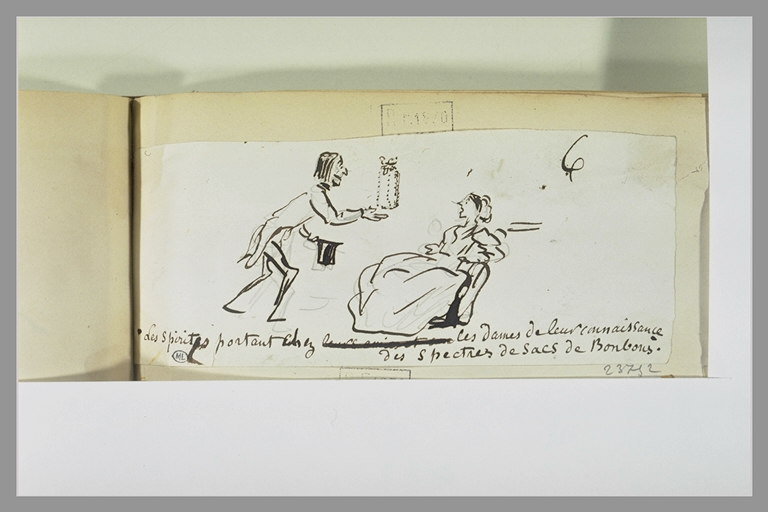 6
Les Spirites portant chez les Dames de leur connaissance
des Spectres de Sacs de Bonbons.
23752